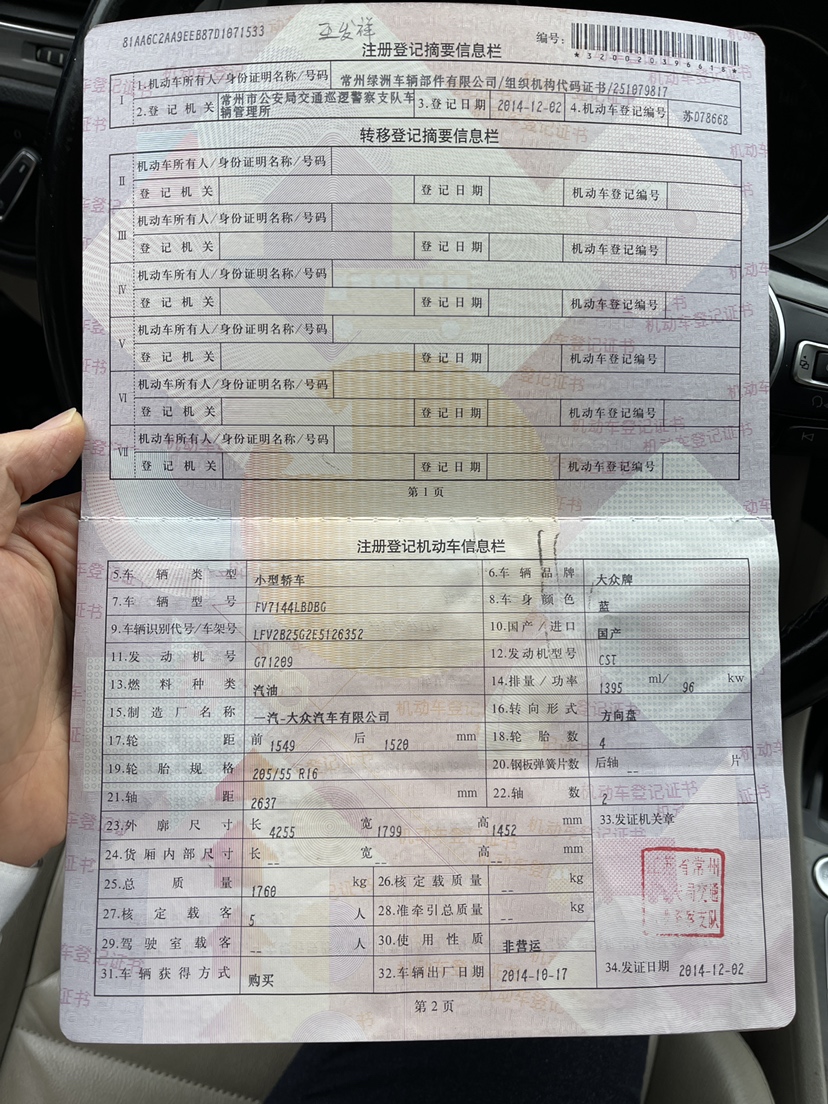 81AA6C2AA9EEB87D1071533
编号:
*320020396618*
注册登记摘要信息栏
I 1.机动车所有人/身份证明名称/号码 常州绿洲车辆部件有限公司/组织机构代码证书/251079817
2.登记机关 常州市公安局交通巡逻警察支队车辆管理所 3.登记日期 2014-12-02 4.机动车登记编号 苏D78668
转移登记摘要信息栏
II 机动车所有人/身份证明名称/号码
登记机关 登记日期 机动车登记编号
III 机动车所有人/身份证明名称/号码
登记机关 登记日期 机动车登记编号
IV 机动车所有人/身份证明名称/号码
登记机关 登记日期 机动车登记编号
V 机动车所有人/身份证明名称/号码
登记机关 登记日期 机动车登记编号
VI 机动车所有人/身份证明名称/号码
登记机关 登记日期 机动车登记编号
VII 机动车所有人/身份证明名称/号码
登记机关 登记日期 机动车登记编号
第1页
注册登记机动车信息栏
5.车辆类型 小型轿车 6.车辆品牌 大众牌
7.车辆型号 FV7144LBDBG 8.车身颜色 蓝
9.车辆识别代号/车架号 LFV2B25G2E5126352 10.国产/进口 国产
11.发动机号 G71209 12.发动机型号 CST
13.燃料种类 汽油 14.排量/功率 1395 ml/ 96 kw
15.制造厂名称 一汽-大众汽车有限公司 16.转向形式 方向盘
17.轮距 前 1549 后 1520 mm 18.轮胎数 4
19.轮胎规格 205/55 R16 20.钢板弹簧片数 后轴 -- 片
21.轴距 2637 mm 22.轴数 2
23.外廓尺寸 长 4255 宽 1799 高 1452 mm 33.发证机关章
24.货厢内部尺寸 长 -- 宽 -- 高 -- mm
25.总质量 1760 kg 26.核定载质量 -- kg
27.核定载客 5 人 28.准牵引总质量 -- kg
29.驾驶室载客 -- 人 30.使用性质 非营运
31.车辆获得方式 购买 32.车辆出厂日期 2014-10-17 34.发证日期 2014-12-02
第2页